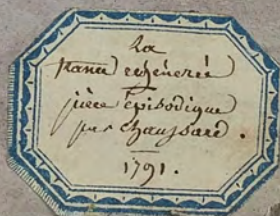 La
france régénérée
pièce épisodique
par chaussard.
1791.